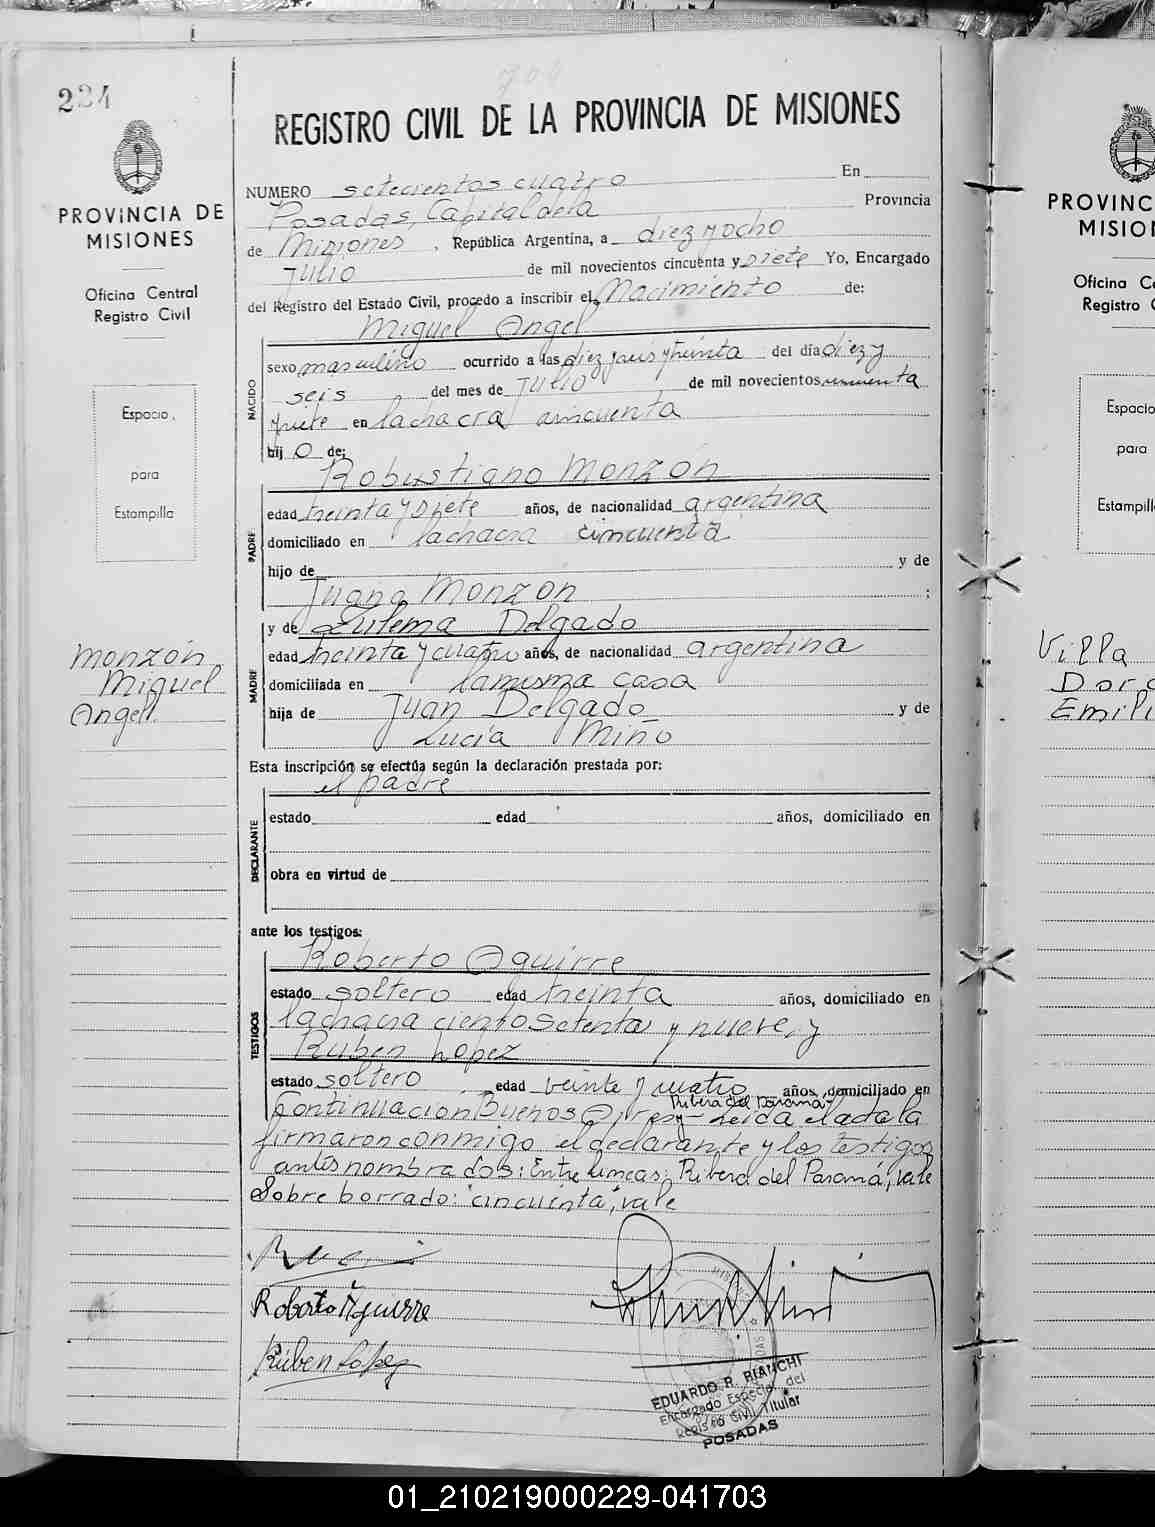 224
704
REGISTRO CIVIL DE LA PROVINCIA DE MISIONES
PROVINCIA DE
MISIONES
Oficina Central
Registro Civil
Espacio
para
Estampilla
Monzón
Miguel
Angel
NUMERO setecientos cuatro En
Posadas, Capital de la Provincia
de Misiones, República Argentina, a diez y ocho
Julio de mil novecientos cincuenta y siete Yo, Encargado
del Registro del Estado Civil, procedo a inscribir el Nacimiento de:
Miguel Angel
NACIDO
sexo masculino ocurrido a las diez y seis y treinta del día diez y
seis del mes de Julio de mil novecientos cincuenta
y siete en la chacra cincuenta
hij o de:
Robustiano Monzon
PADRE
edad treinta y siete años, de nacionalidad argentina
domiciliado en la chacra cincuenta
hijo de y de
Juana Monzon ;
y de Zulema Delgado
MADRE
edad treinta y cuatro años, de nacionalidad argentina
domiciliada en la misma casa
hija de Juan Delgado y de
Lucia Miño
Esta inscripción se efectúa según la declaración prestada por:
el padre
DECLARANTE
estado edad años, domiciliado en
obra en virtud de
ante los testigos:
Roberto Aguirre
TESTIGOS
estado soltero edad treinta años, domiciliado en
la chacra ciento setenta y nueve, y
Ruben Lopez
estado soltero edad veinte y cuatro años, domiciliado en
Ribera del Paraná
Continuacion Buenos Aires y- Leida el acta la
firmaron conmigo el declarante y los testigos
antes nombrados: Entre lineas: Ribera del Paraná, vale
Sobre borrado: "cincuenta", vale
Roberto Aguirre
Rúben Lopez
EDUARDO R. BIANCHI
Encargado Especial del
Registro Civil Titular
POSADAS
PROVINC
MISION
Oficina Ce
Registro C
Espacio
para
Estampill
Villa
Dora
Emili
01_210219000229-041703